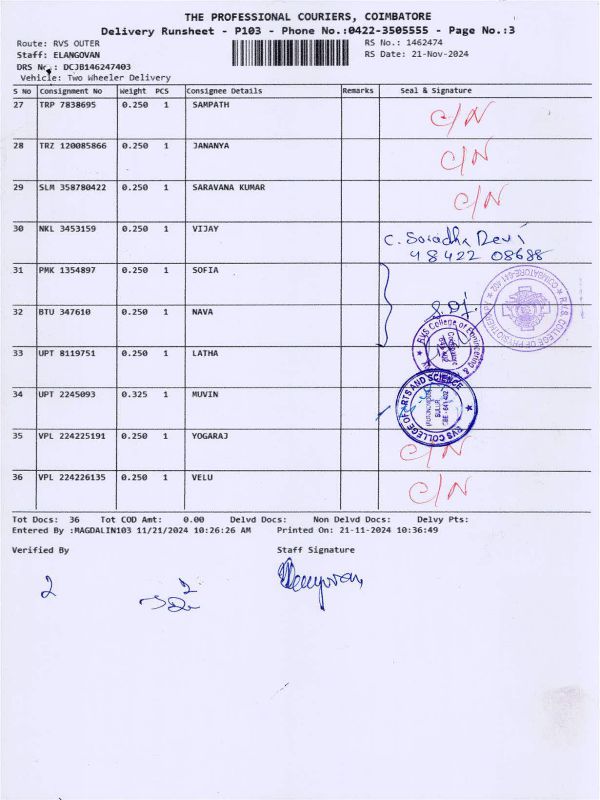 THE PROFESSIONAL COURIERS, COIMBATORE
Delivery Runsheet - P103 - Phone No.:0422-3505555 - Page No.:3
Route: RVS OUTER RS No.: 1462474
Staff: ELANGOVAN RS Date: 21-Nov-2024
DRS No.: DCJB146247403
Vehicle: Two Wheeler Delivery
S No Consignment No Weight PCS Consignee Details Remarks Seal & Signature
27 TRP 7838695 0.250 1 SAMPATH C/N
28 TRZ 120085866 0.250 1 JANANYA C/N
29 SLM 358780422 0.250 1 SARAVANA KUMAR C/N
30 NKL 3453159 0.250 1 VIJAY
C. Soradha Devi
48422 08688
31 PMK 1354897 0.250 1 SOFIA
32 BTU 347610 0.250 1 NAVA
RVS COLLEGE OF PHYSIOTHERAPY COIMBATORE-641 402
33 UPT 8119751 0.250 1 LATHA
RVS College of Engineering &
34 UPT 2245093 0.325 1 MUVIN
RVS COLLEGE OF ARTS AND SCIENCE
(AUTONOMOUS)
SULUR
CBE - 641 402
35 VPL 224225191 0.250 1 YOGARAJ C/N
36 VPL 224226135 0.250 1 VELU C/N
Tot Docs: 36 Tot COD Amt: 0.00 Delvd Docs: Non Delvd Docs: Delvy Pts:
Entered By :MAGDALIN103 11/21/2024 10:26:26 AM Printed On: 21-11-2024 10:36:49
Verified By Staff Signature
2 2